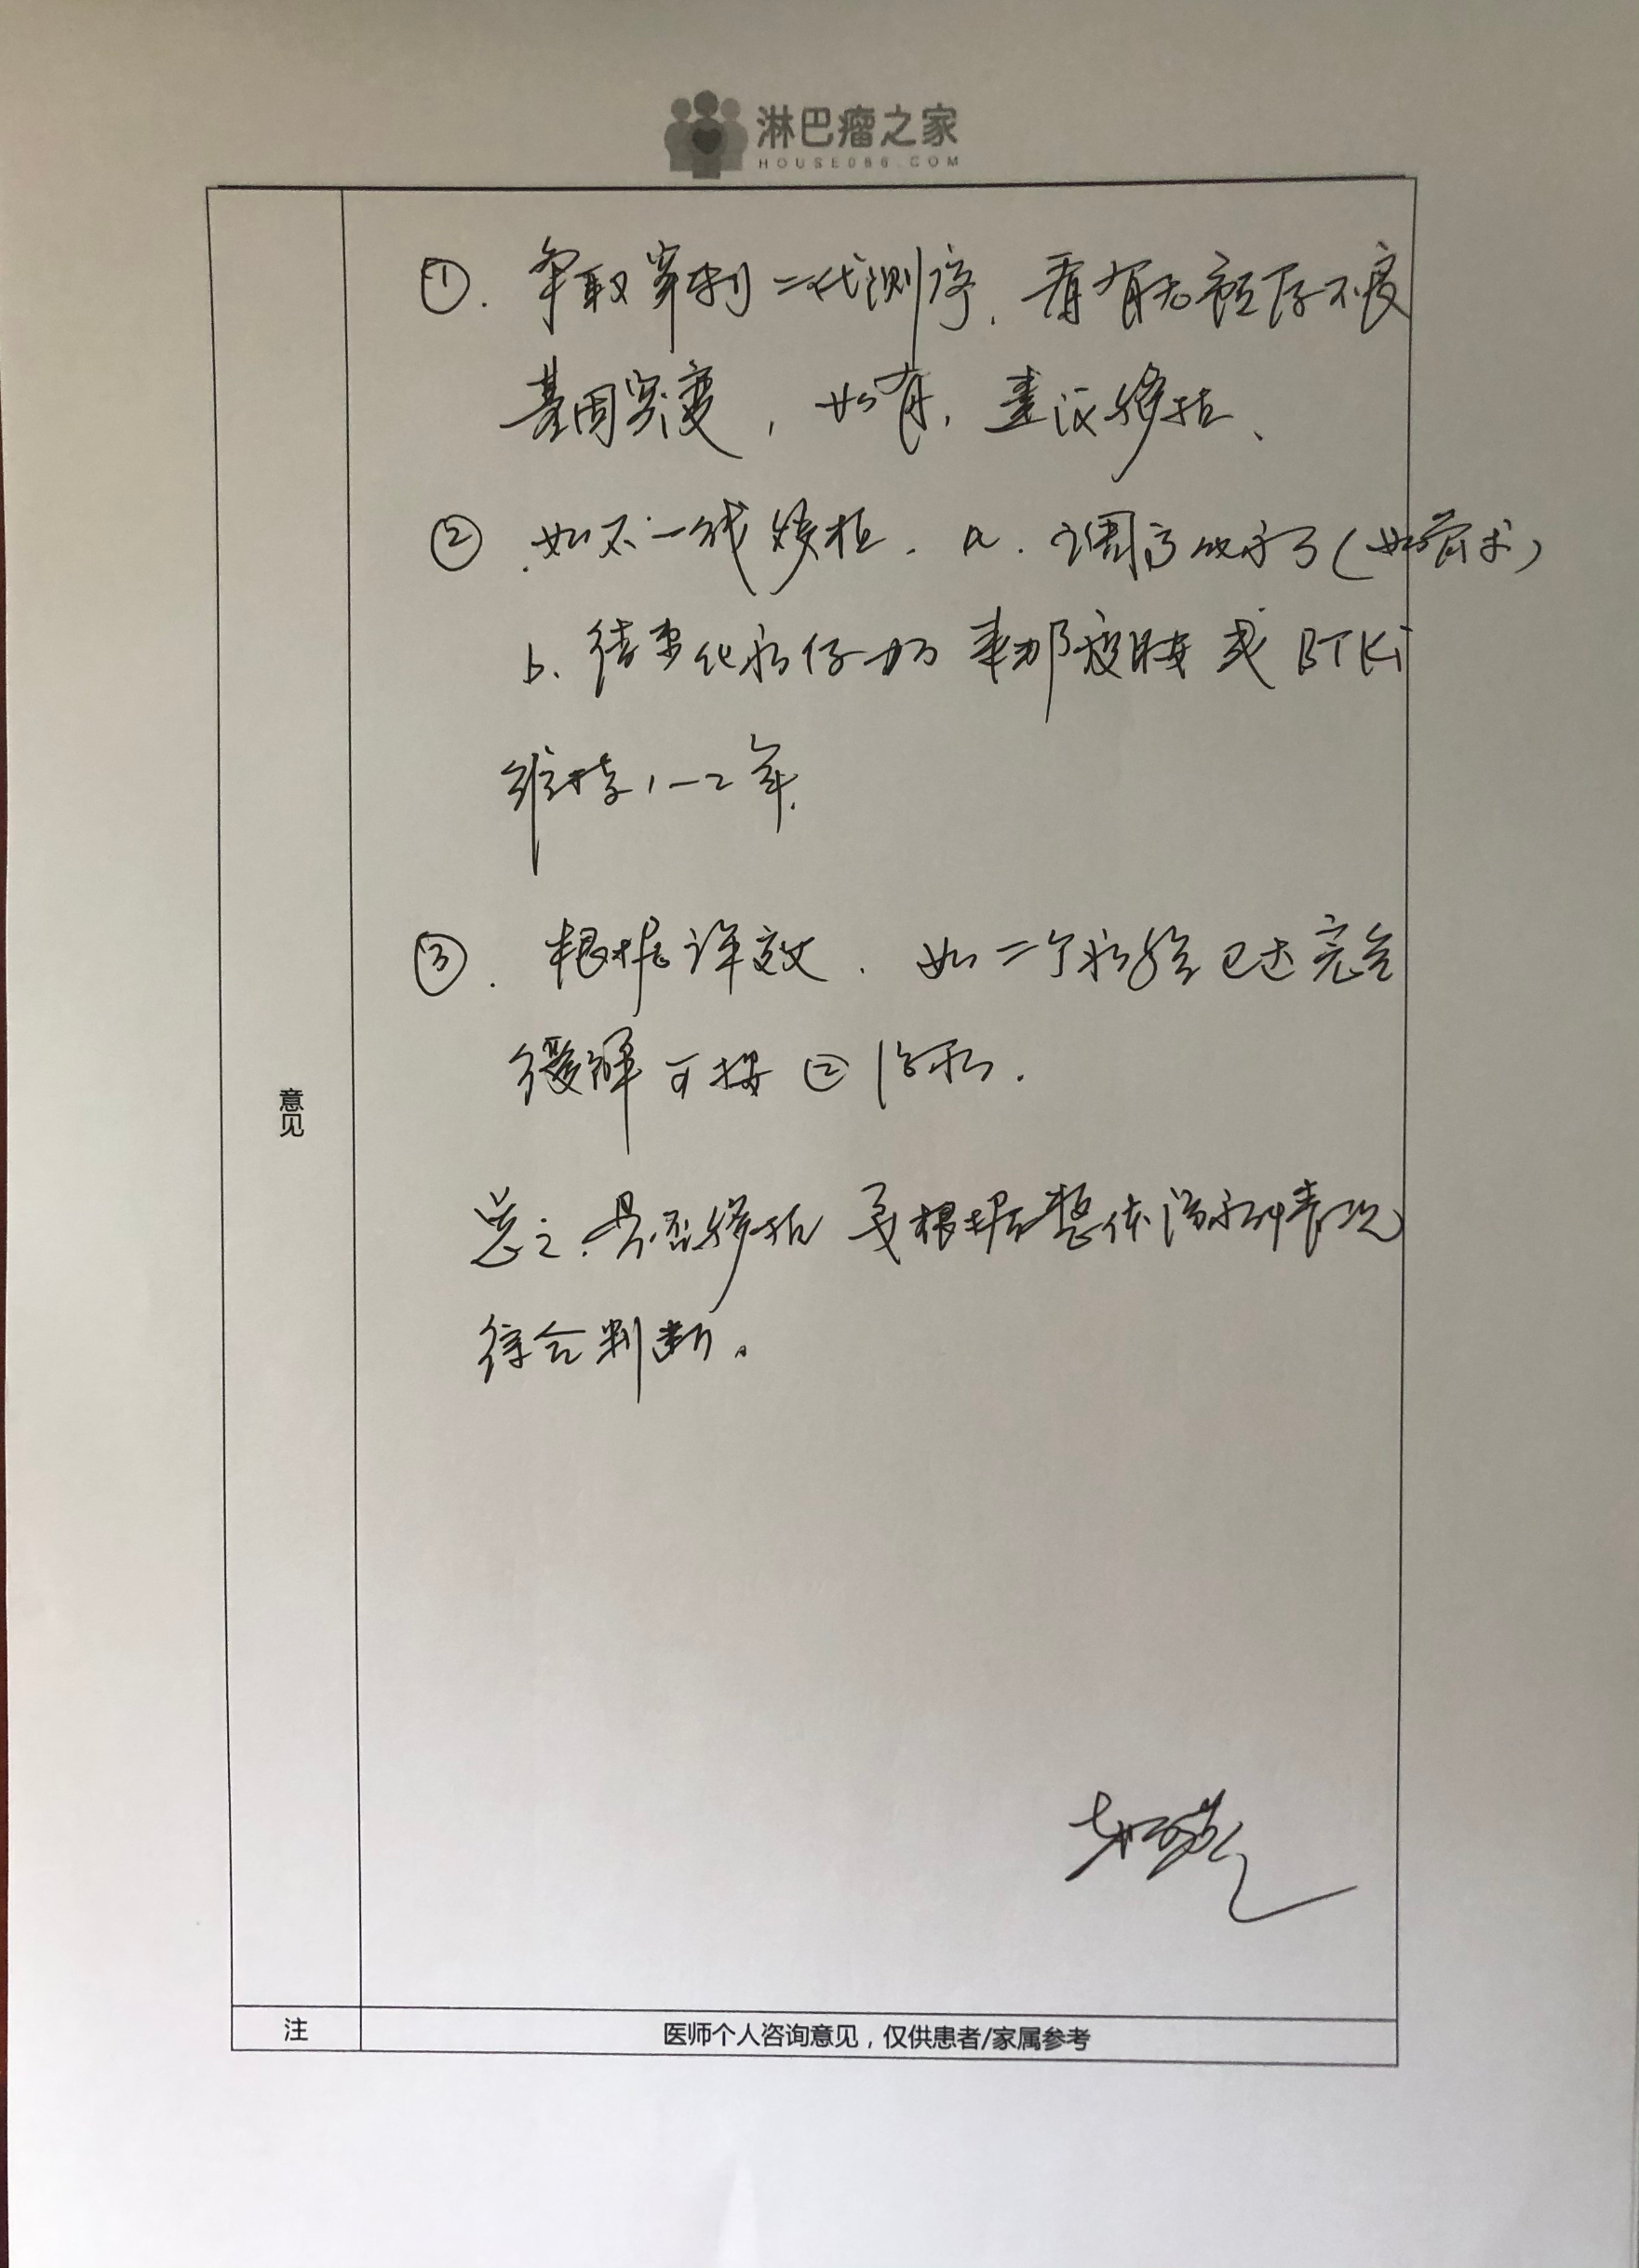 淋巴瘤之家
HOUSE086.COM
①. 争取穿刺二代测序, 看有无预后不良
基因突变, 如有, 建议移植、
② 如不一线移植. a. 调高化疗(如前述)
b. 结束化疗后 来那度胺 或 BTKi
维持1-2年.
③. 根据疗效. 如二个疗程已达完全
缓解 可按②治疗.
总之. 是否移植 要根据整体治疗情况
综合判断。
意见
注
医师个人咨询意见，仅供患者/家属参考